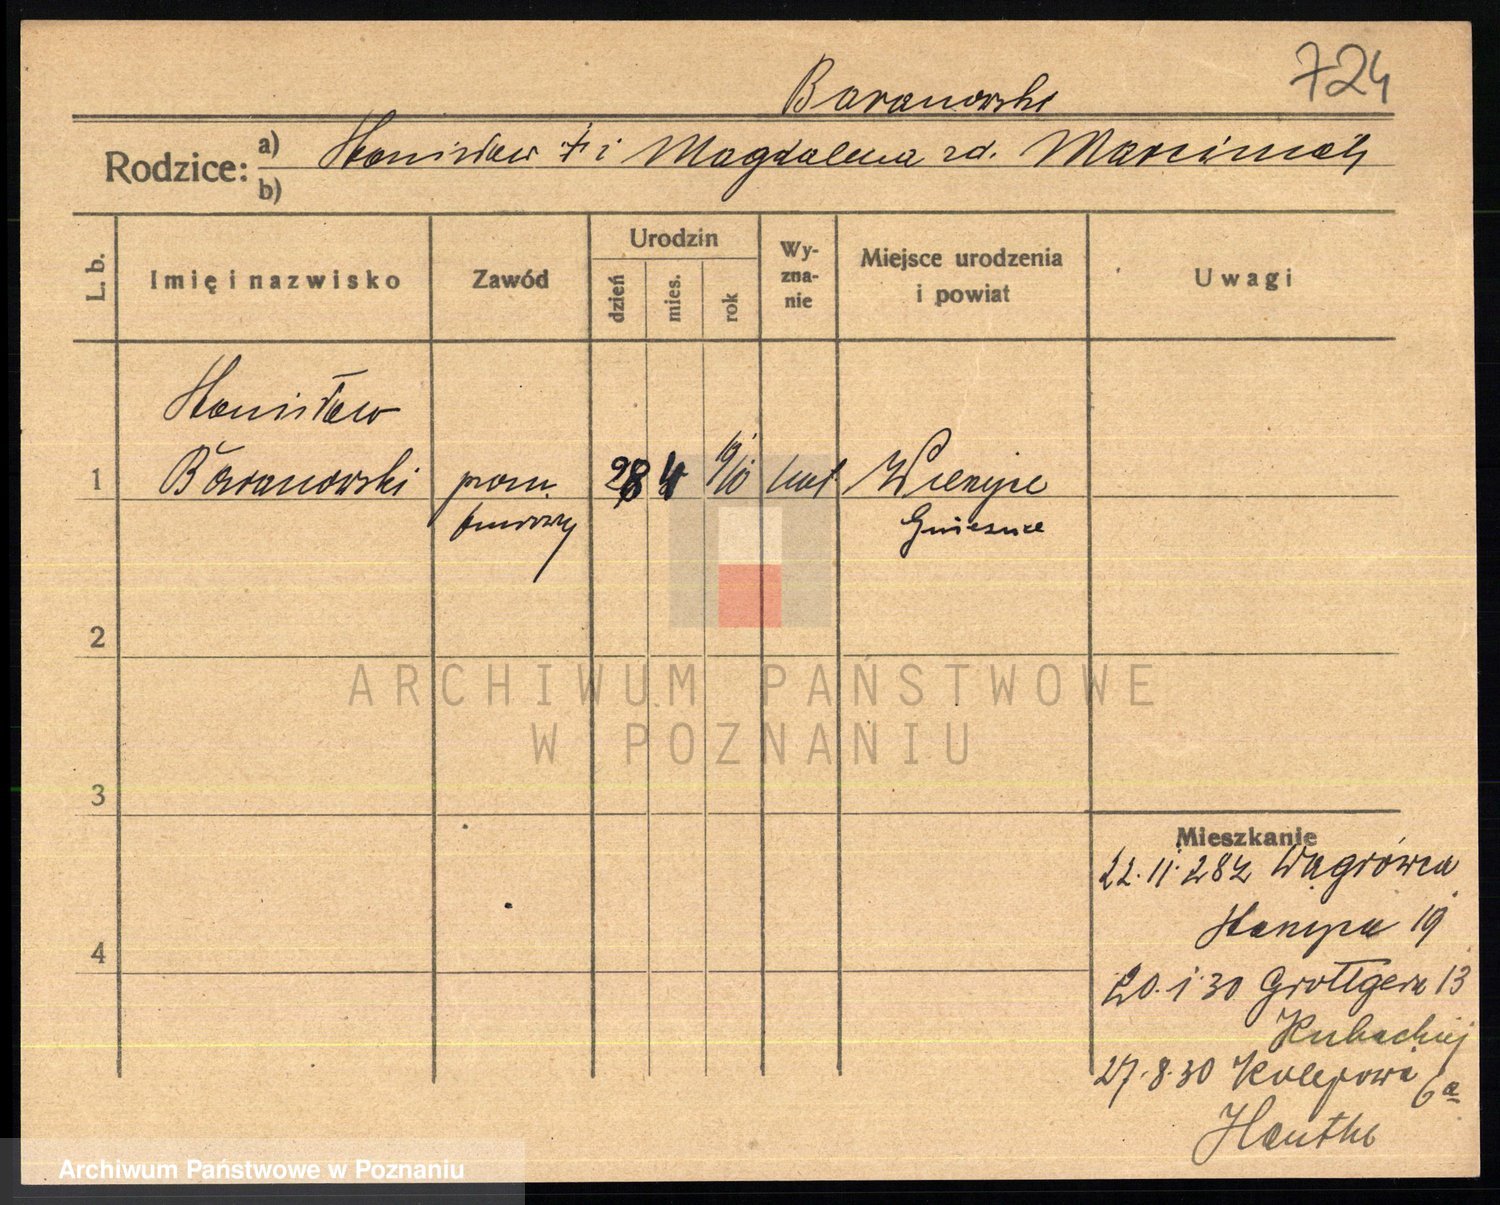 724
Baranowski
Rodzice: a) Stanisław † i Magdalena zd. Marciniak
b)
L. b.
Imię i nazwisko
Zawód
Urodzin
dzień
mies.
rok
Wy-
zna-
nie
Miejsce urodzenia
i powiat
Uwagi
Stanisław
1 Baranowski prac. 28 4 910 kat.
biurowy Gniezno
2
ARCHIWUM PAŃSTWOWE
W POZNANIU
3
4
Mieszkanie
22.11.28 z Wągrówca
19
20.1.30 Grottgera 13
Kubackiej
27.8.30 Kolejowa 6a
Archiwum Państwowe w Poznaniu